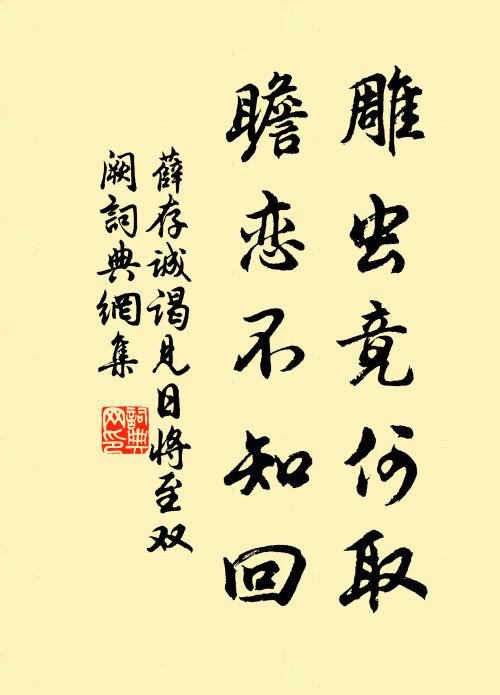 雕虫竟何取
瞻恋不知回
薛存诚谒见日将至双
阙詞典網集
詞典网印